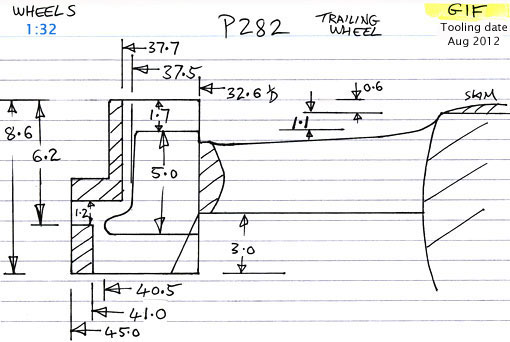 WHEELS
1:32
P282
TRAILING
WHEEL
GIF
Tooling date
Aug 2012
37.7
37.5
32.6 I/D
0.6
SKIM
1.7
1.1
8.6
6.2
5.0
1.2
3.0
40.5
41.0
45.0